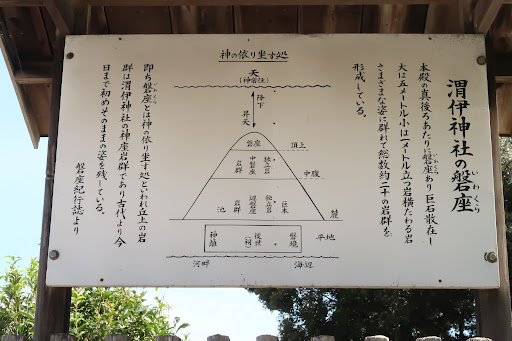 渭伊神社の磐座
いわくら
本殿の真後ろあたりに磐座あり巨石散在し
大は五メートル小は一メートル立つ岩横たわる岩
さまざまな姿に群れて総数約二十の岩群を
形成している。
神の依り坐す処
天
(神常住)
降下
昇天
磐座
頂上
岩群
中磐座
独立岩
中腹
岩群
辺磐座
独立岩
巨木
池
麓
神籬
後世
(祠)
磐境
平地
河畔
海辺
いわくら
即ち磐座とは神の依り坐す処といわれ丘上の岩
群は渭伊神社の神座岩群であり古代より今
日まで初めそのままの姿を残している。
磐座紀行誌より